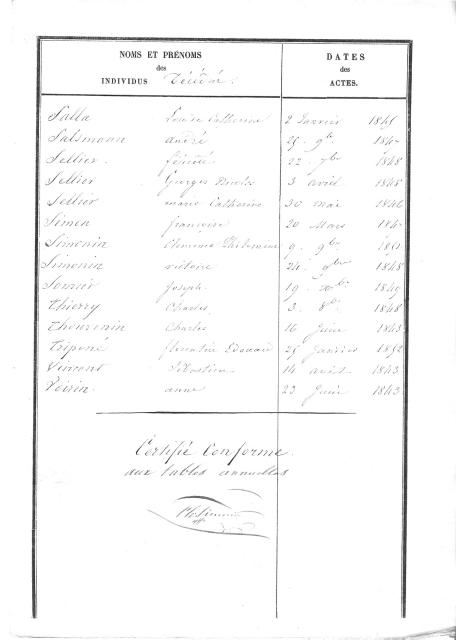 NOMS ET PRÉNOMS DATES
des des
INDIVIDUS Décédés. ACTES.
Salla Catherine 2 Janvier 1845
Salzmann andré 25. 9bre
Sellier. félicité 22. 7bre 1848
Sellier Georges Nicolas 3 avril 1848
Sellier marie Catherine 30 mai 1846
Simon françoise 20 Mars
Simonin Clémence Philomène 9. 9bre
Simonin victoire 24. 9bre 1848
Joseph. 19. 1849
Thierry Charles 3. 8bre 1848
Thouvenin Charles 16 Juin 1843
Triponé florentin Edouard 25 Janvier 1852
Vimont Sébastien 14 avril 1843
Voirin. anne 23 Juin 1843
Certifié Conforme.
aux tables annuelles